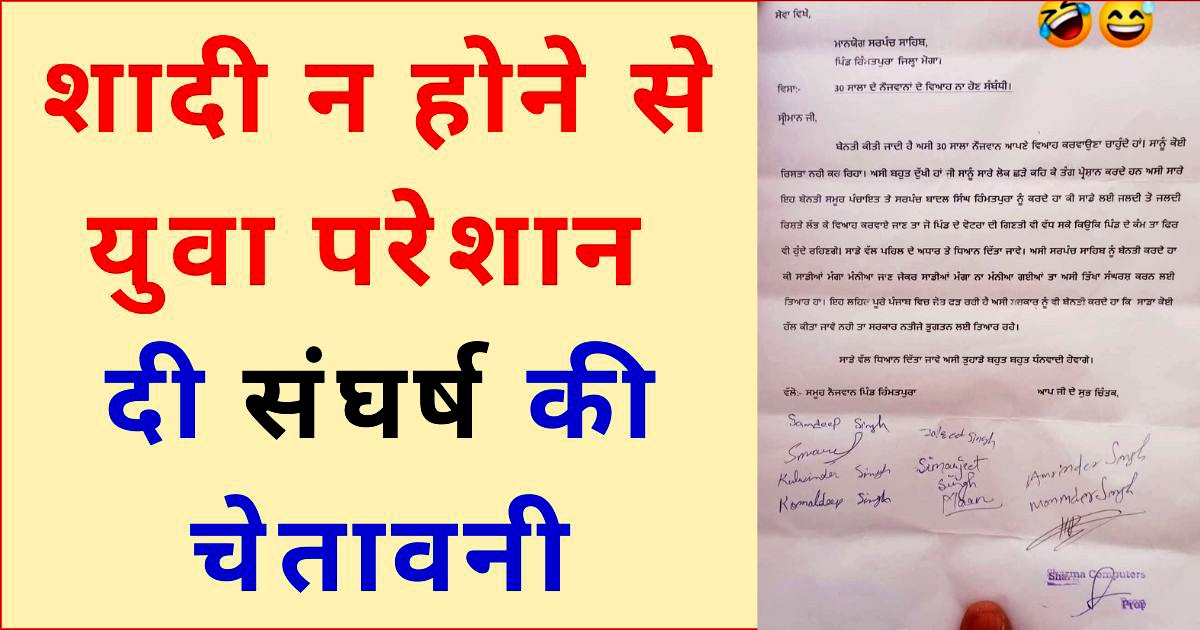 शादी न होने से
युवा परेशान
दी संघर्ष की
चेतावनी
ਸੇਵਾ ਵਿਖੇ,
ਮਾਨਯੋਗ ਸਰਪੰਚ ਸਾਹਿਬ,
ਪਿੰਡ ਹਿੰਮਤਪੁਰਾ ਜਿਲ੍ਹਾ ਮੋਗਾ।
ਵਿਸ਼ਾ:- 30 ਸਾਲਾ ਦੇ ਨੌਜਵਾਨਾਂ ਦੇ ਵਿਆਹ ਨਾ ਹੋਣ ਸੰਬੰਧੀ।
ਸ਼੍ਰੀਮਾਨ ਜੀ,
ਬੇਨਤੀ ਕੀਤੀ ਜਾਦੀ ਹੈ ਅਸੀ 30 ਸਾਲਾ ਨੌਜਵਾਨ ਆਪਣੇ ਵਿਆਹ ਕਰਵਾਉਣਾ ਚਾਹੁੰਦੇ ਹਾਂ। ਸਾਨੂੰ ਕੋਈ
ਰਿਸਤਾ ਨਹੀ ਕਰ ਰਿਹਾ। ਅਸੀ ਬਹੁਤ ਦੁੱਖੀ ਹਾਂ ਜੀ ਸਾਨੂੰ ਸਾਰੇ ਲੋਕ ਛੜੇ ਕਹਿ ਕੇ ਤੰਗ ਪ੍ਰੇਸ਼ਾਨ ਕਰਦੇ ਹਨ ਅਸੀ ਸਾਰੇ
ਇਹ ਬੇਨਤੀ ਸਮੂਹ ਪੰਚਾਇਤ ਤੇ ਸਰਪੰਚ ਬਾਦਲ ਸਿੰਘ ਹਿੰਮਤਪੁਰਾ ਨੂੰ ਕਰਦੇ ਹਾ ਕੀ ਸਾਡੇ ਲਈ ਜਲਦੀ ਤੋ ਜਲਦੀ
ਰਿਸ਼ਤੇ ਲੱਭ ਕੇ ਵਿਆਹ ਕਰਵਾਏ ਜਾਣ ਤਾ ਜੋ ਪਿੰਡ ਦੇ ਵੋਟਰਾ ਦੀ ਗਿਣਤੀ ਵੀ ਵੱਧ ਸਕੇ ਕਿਉਕਿ ਪਿੰਡ ਦੇ ਕੰਮ ਤਾ ਫਿਰ
ਵੀ ਹੁੰਦੇ ਰਹਿਣਗੇ। ਸਾਡੇ ਵੱਲ ਪਹਿਲ ਦੇ ਅਧਾਰ ਤੇ ਧਿਆਨ ਦਿੱਤਾ ਜਾਵੇ। ਅਸੀ ਸਰਪੰਚ ਸਾਹਿਬ ਨੂੰ ਬੇਨਤੀ ਕਰਦੇ ਹਾ
ਕੀ ਸਾਡੀਆਂ ਮੰਗਾ ਮੰਨੀਆ ਜਾਣ ਜੇਕਰ ਸਾਡੀਆਂ ਮੰਗਾ ਨਾ ਮੰਨੀਆ ਗਈਆਂ ਤਾ ਅਸੀ ਤਿੱਖਾ ਸੰਘਰਸ਼ ਕਰਨ ਲਈ
ਤਿਆਰ ਹਾ। ਇਹ ਲਹਿਰ ਪੂਰੇ ਪੰਜਾਬ ਵਿਚ ਜੋਰ ਫੜ ਰਹੀ ਹੈ ਅਸੀ ਸਰਕਾਰ ਨੂੰ ਵੀ ਬੇਨਤੀ ਕਰਦੇ ਹਾ ਕਿ ਸਾਡਾ ਕੋਈ
ਹੱਲ ਕੀਤਾ ਜਾਵੇ ਨਹੀ ਤਾ ਸਰਕਾਰ ਨਤੀਜੇ ਭੁਗਤਨ ਲਈ ਤਿਆਰ ਰਹੇ।
ਸਾਡੇ ਵੱਲ ਧਿਆਨ ਦਿੱਤਾ ਜਾਵੇ ਅਸੀ ਤੁਹਾਡੇ ਬਹੁਤ ਬਹੁਤ ਧੰਨਵਾਦੀ ਹੋਵਾਗੇ।
ਵੱਲੋ:- ਸਮੂਹ ਨੌਜਵਾਨ ਪਿੰਡ ਹਿੰਮਤਪੁਰਾ ਆਪ ਜੀ ਦੇ ਸੁਭ ਚਿੰਤਕ,
Samdeep Singh
Kulwinder Singh Simarjeet Singh Amrinder Singh
Komaldeep Singh Maninder Singh
Sharma Computers
Prop